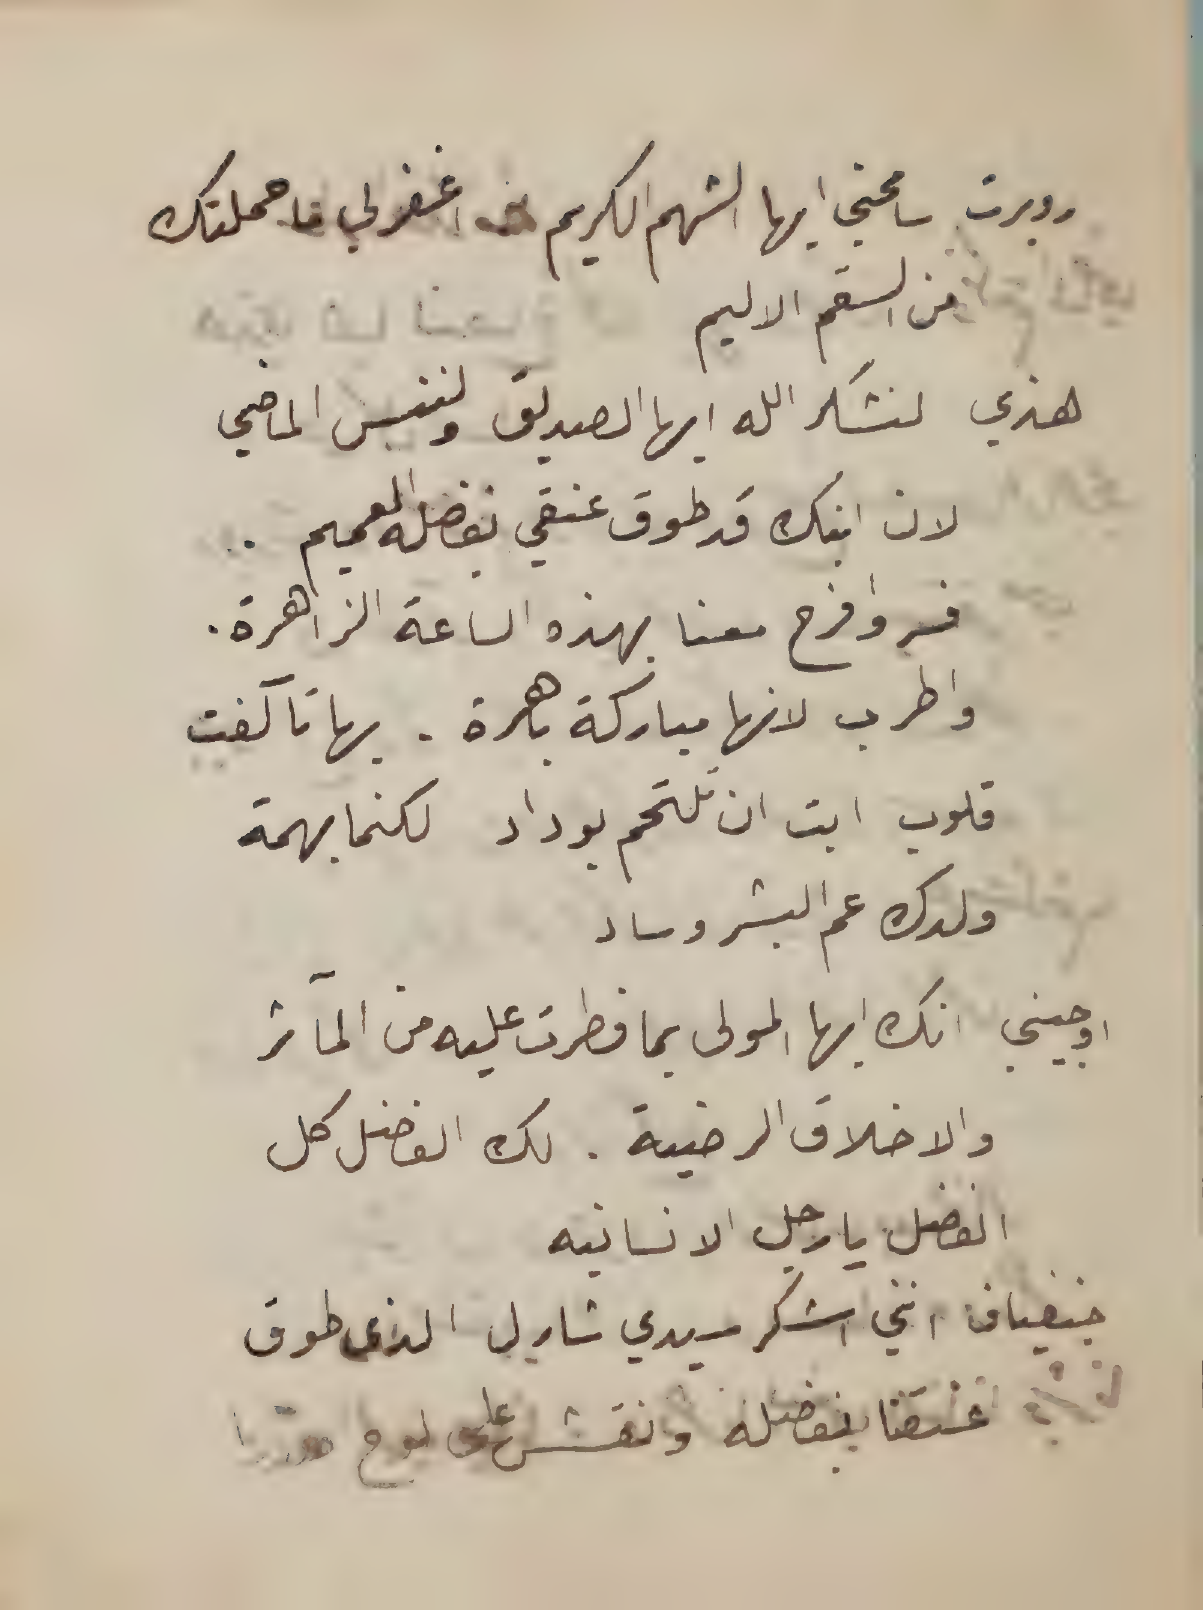 روبرت سامحني ايها الشهم الكريم اغفر لي ما حملتك
من السقم الاليم
هنري لنشكر الله ايها الصديق ولننس الماضي
لان ابنك قد طوق عنقي بفضله العميم ..
فسر وافرح معنا بهذه الساعة الزاهرة .
واطرب لانها مباركة باهرة . بها تآلفت
قلوب ابت ان تلتحم بوداد لكنما بهمة
ولدك عم البشر وساد
اوجيني انك ايها المولى بما فطرت عليه من المآثر
والاخلاق الرضية . لك الفضل كل
الفضل يا رجل الانسانيه
جنفياف انني اشكر سيدي شارل الذي طوق
عنقنا بفضله ونقش على لوح